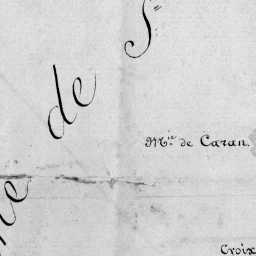 de S
Mie de Caran.
Croix